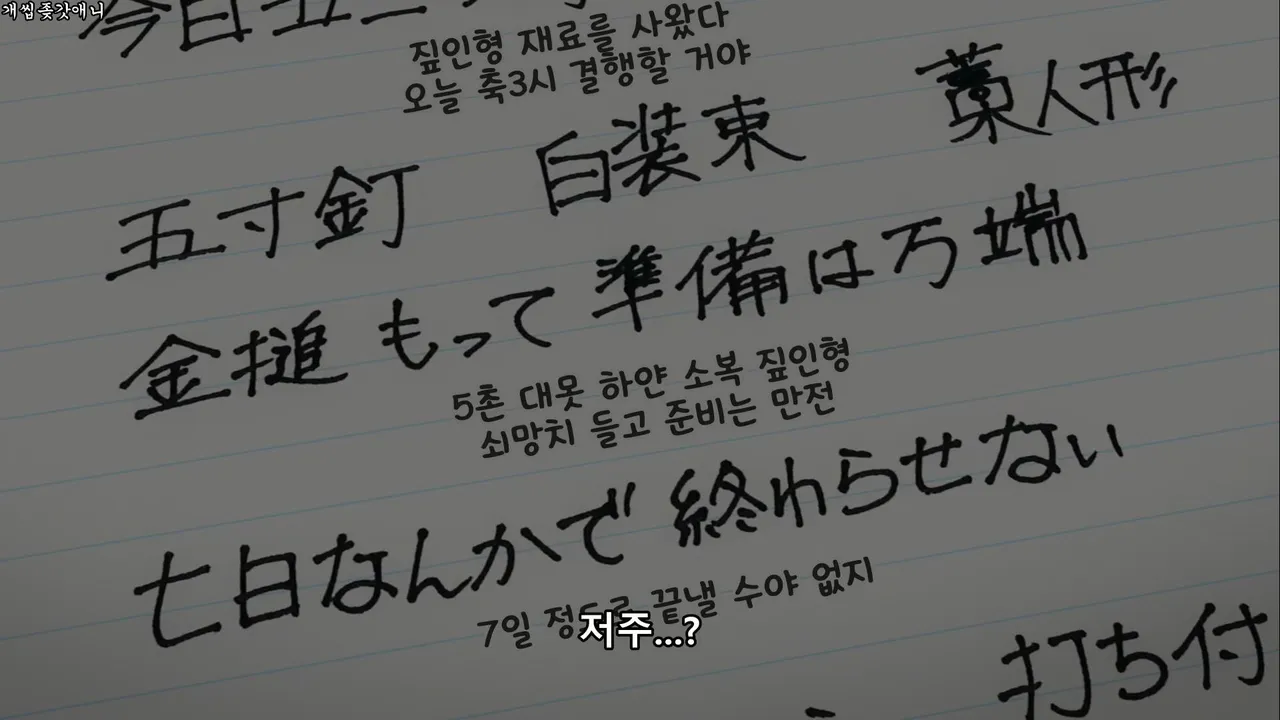 개씹좆갓애니
今日丑三
짚인형 재료를 사왔다
오늘 축3시 결행할 거야
五寸釘 白装束 藁人形
金槌もって準備は万端
5촌 대못 하얀 소복 짚인형
쇠망치 들고 준비는 만전
七日なんかで終わらせない
7일 정도로 끝낼 수야 없지
저주...?
打ち付